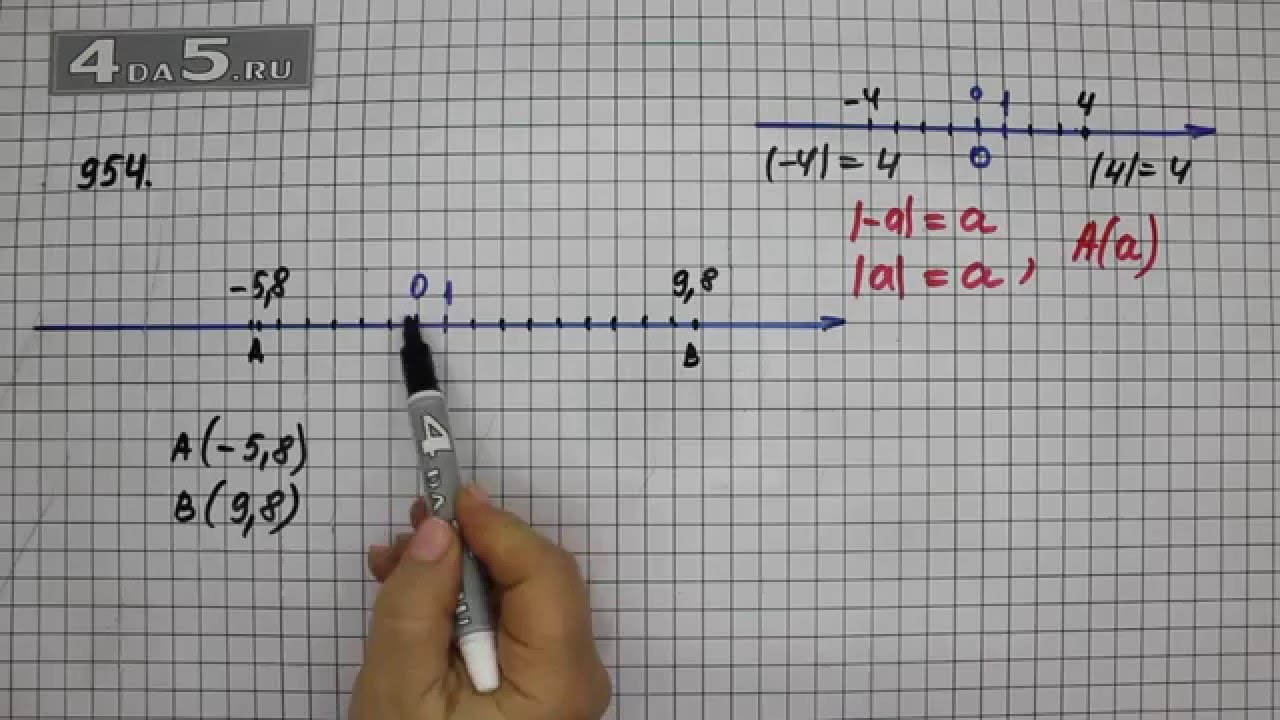 4DA5.RU
954.
-4 0 1 4
0
|-4| = 4 |4| = 4
|-a| = a
|a| = a, A(a)
-5,8 0 1 9,8
A B
A(-5,8)
B(9,8)
4